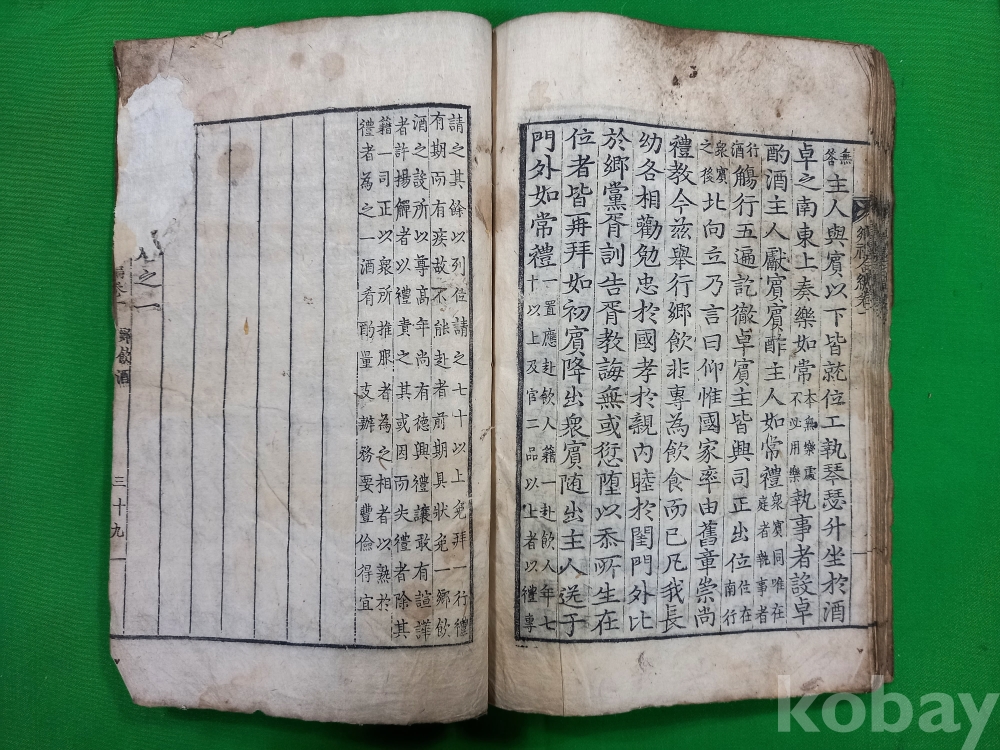 鄉禮合編卷一
無答主人與賓以下皆就位工執琴瑟升坐於酒
卓之南東上奏樂如常本無樂處不必用樂執事者設卓
酌酒主人獻賓賓酢主人如常禮衆賓同唯在庭者執事者
行酒觴行五遍訖徹卓賓主皆興司正出位位在南行
衆賓之後北向立乃言曰仰惟國家率由舊章崇尚
禮教今茲舉行鄉飲非專為飲食而已凡我長
幼各相勸勉忠於國孝於親內睦於閨門外比
於鄉黨胥訓告胥教誨無或愆墮以忝所生在
位者皆再拜如初賓降出衆賓随出主人送于
門外如常禮一置應赴飲人籍一赴飲人年七十以上及官二品以上者以禮專
請之其餘以列位請之七十以上免拜一行禮
有期而有疾故不能赴者前期具狀免一鄉飲
酒之設所以尊高年尚有德興禮讓敢有諠譁
者許揚觶者以禮責之其或因而失禮者除其
籍一司正以衆所推服者為之相者以熟於
禮者為之一酒肴酌量支辦務要豐儉得宜
之一
鄉飲酒 三十九
kobay